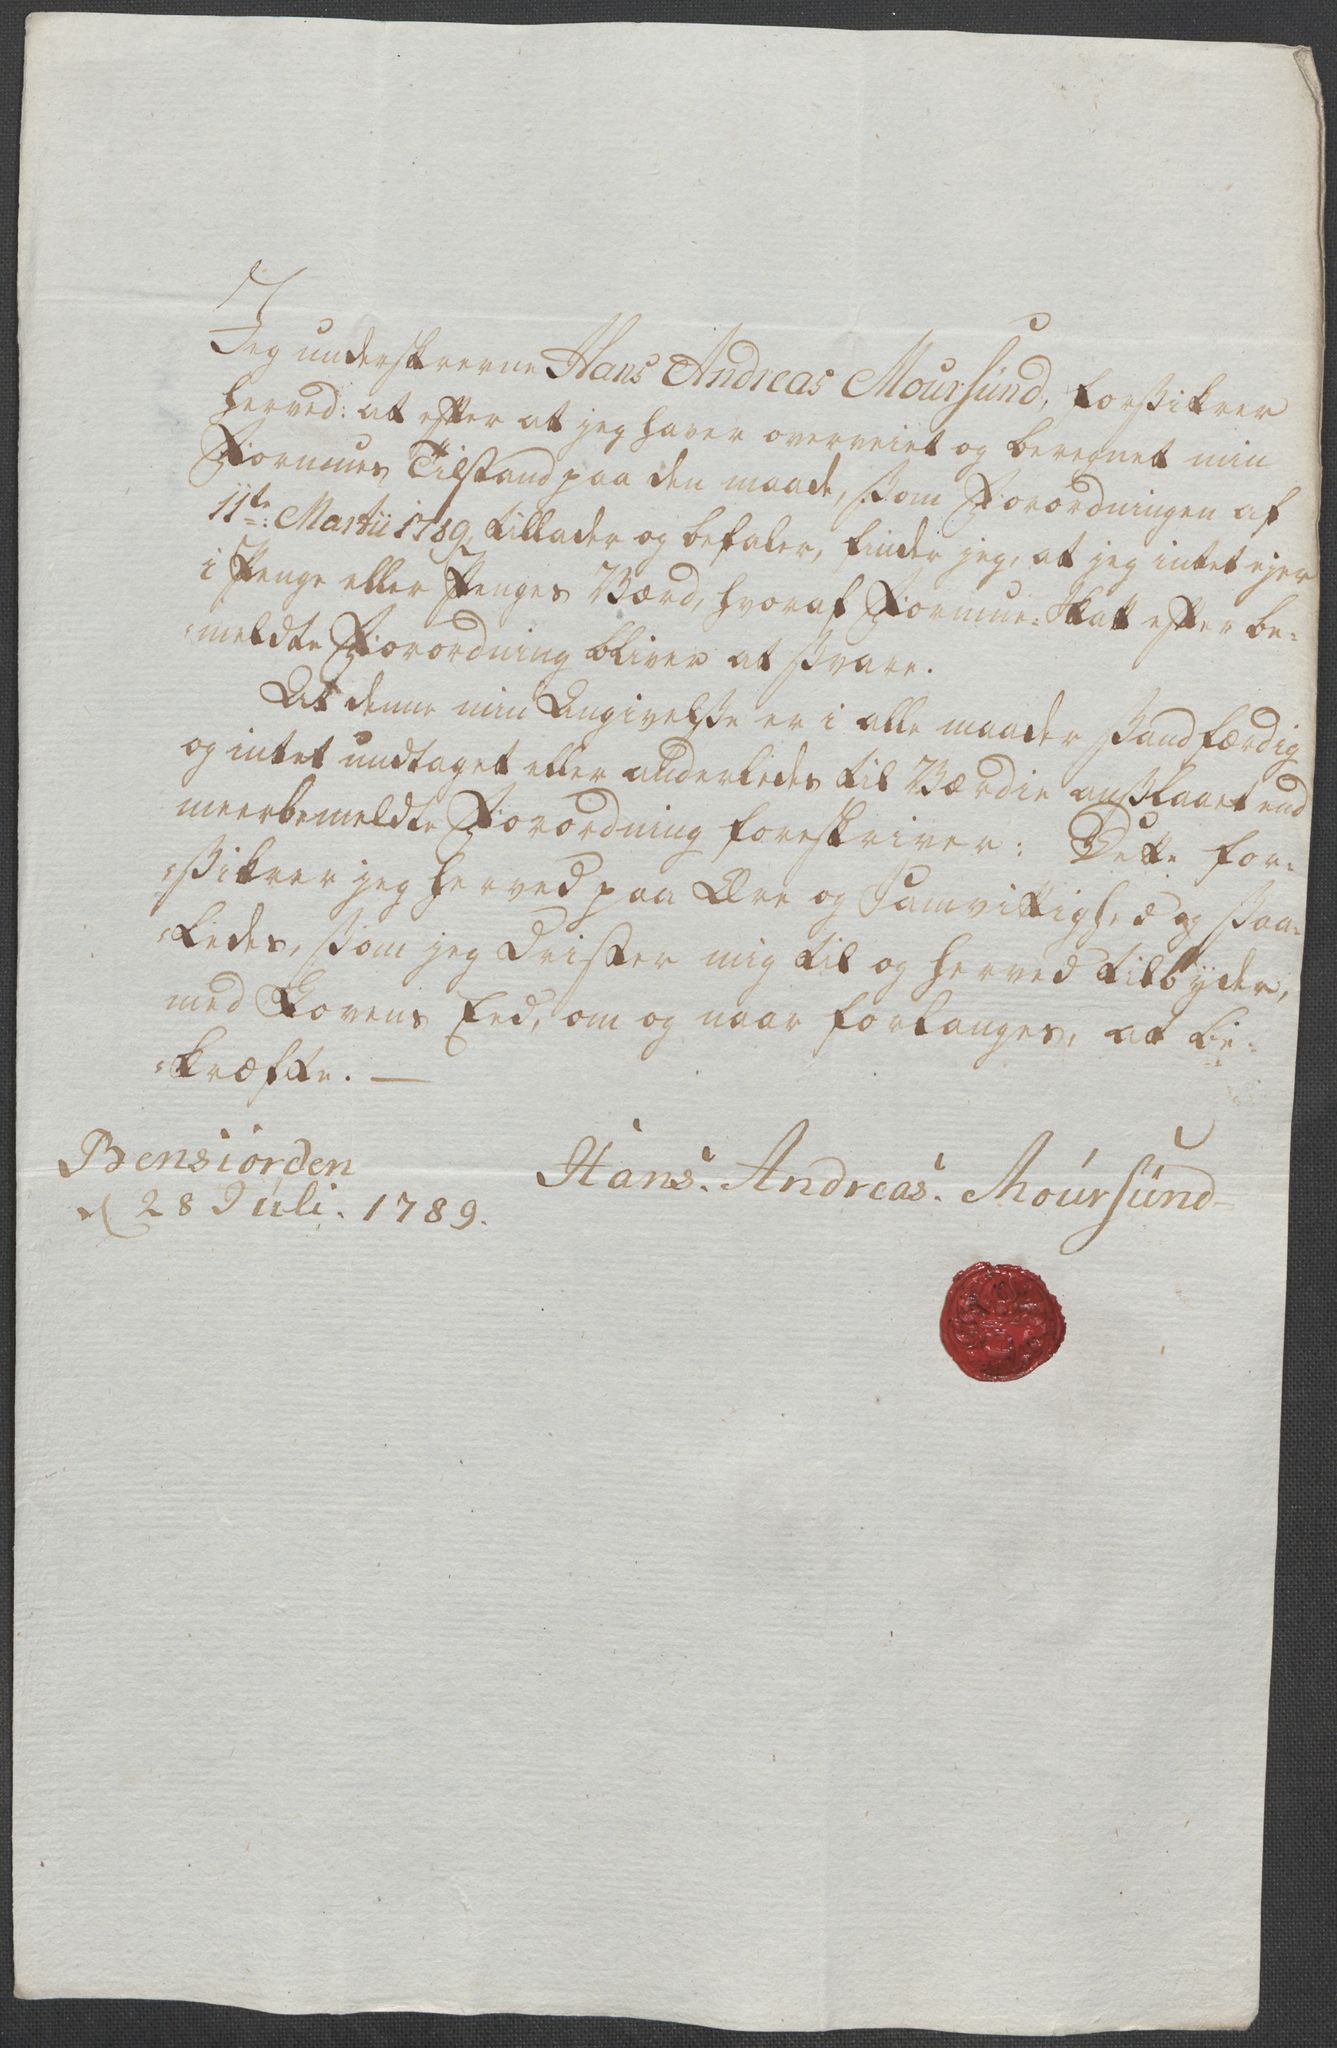 Jeg underskrevne Hans Andreas Moursund, forsikrer
herved: at efter at jeg haver overveiet og beregnet min
Formues Tilstand paa den maade, som Forordningen af
11te: Martii 1789, tillader og befaler, finder jeg, at jeg intet ejer
i Penge eller Penges Værd, hvoraf Formue-Skatt efter be-
meldte Forordning bliver at svare.
At denne min Angivelse er i alle maader sandfærdig
og intet undtaget eller anderledes til Værdie anslaaet end
meerbemeldte Forordning foreskriver: Dette for-
sikrer jeg herved paa Ære og Samvittighed og saa-
ledes, som jeg drister mig til og herved tilbyder,
med Lovens Eed, om og naar forlanges, at be-
kræfte. —
Bensiorden
d 28 Juli. 1789.
Hans. Andreas. Moursund